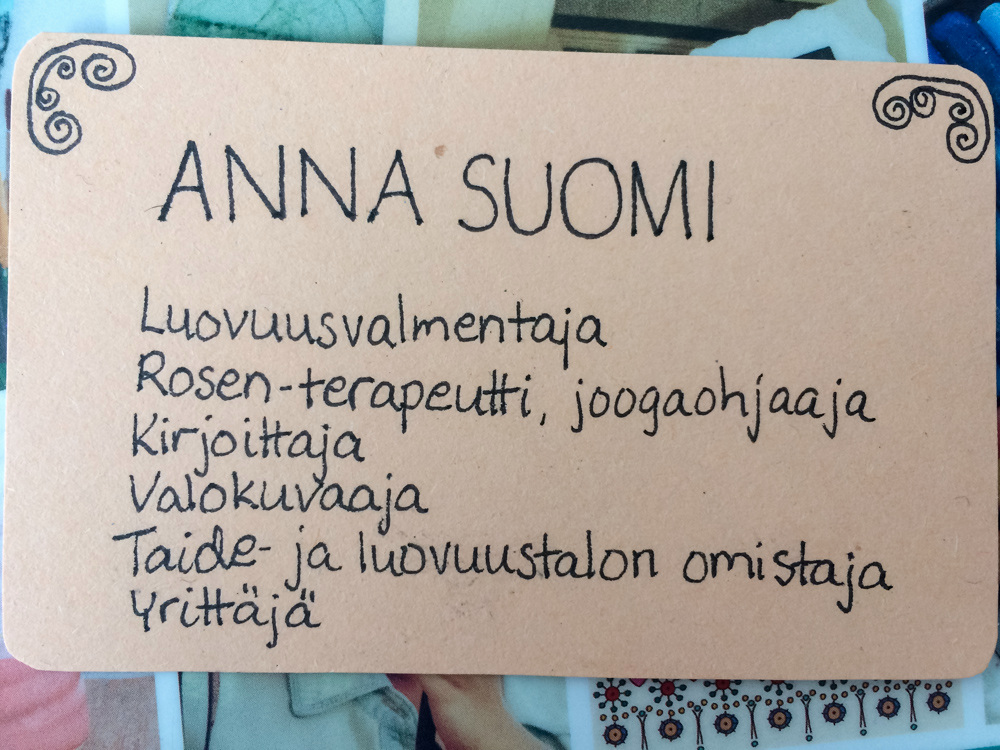 ANNA SUOMI
Luovuusvalmentaja
Rosen-terapeutti, joogaohjaaja
Kirjoittaja
Valokuvaaja
Taide- ja luovuustalon omistaja
Yrittäjä